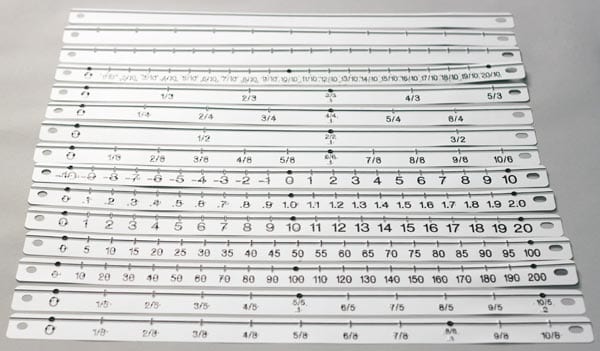 0 1/10 2/10 3/10 4/10 5/10 6/10 7/10 8/10 9/10 10/10 11/10 12/10 13/10 14/10 15/10 16/10 17/10 18/10 19/10 20/10
0 1/3 2/3 3/3 1 4/3 5/3
0 1/4 2/4 3/4 4/4 1 5/4 6/4
0 1/2 2/2 1 3/2
0 1/6 2/6 3/6 4/6 5/6 6/6 1 7/6 8/6 9/6 10/6
-10 -9 -8 -7 -6 -5 -4 -3 -2 -1 0 1 2 3 4 5 6 7 8 9 10
0 .1 .2 .3 .4 .5 .6 .7 .8 .9 1.0 1.1 1.2 1.3 1.4 1.5 1.6 1.7 1.8 1.9 2.0
0 1 2 3 4 5 6 7 8 9 10 11 12 13 14 15 16 17 18 19 20
0 5 10 15 20 25 30 35 40 45 50 55 60 65 70 75 80 85 90 95 100
0 10 20 30 40 50 60 70 80 90 100 110 120 130 140 150 160 170 180 190 200
0 1/5 2/5 3/5 4/5 5/5 1 6/5 7/5 8/5 9/5 10/5 2
0 1/8 2/8 3/8 4/8 5/8 6/8 7/8 8/8 1 9/8 10/8